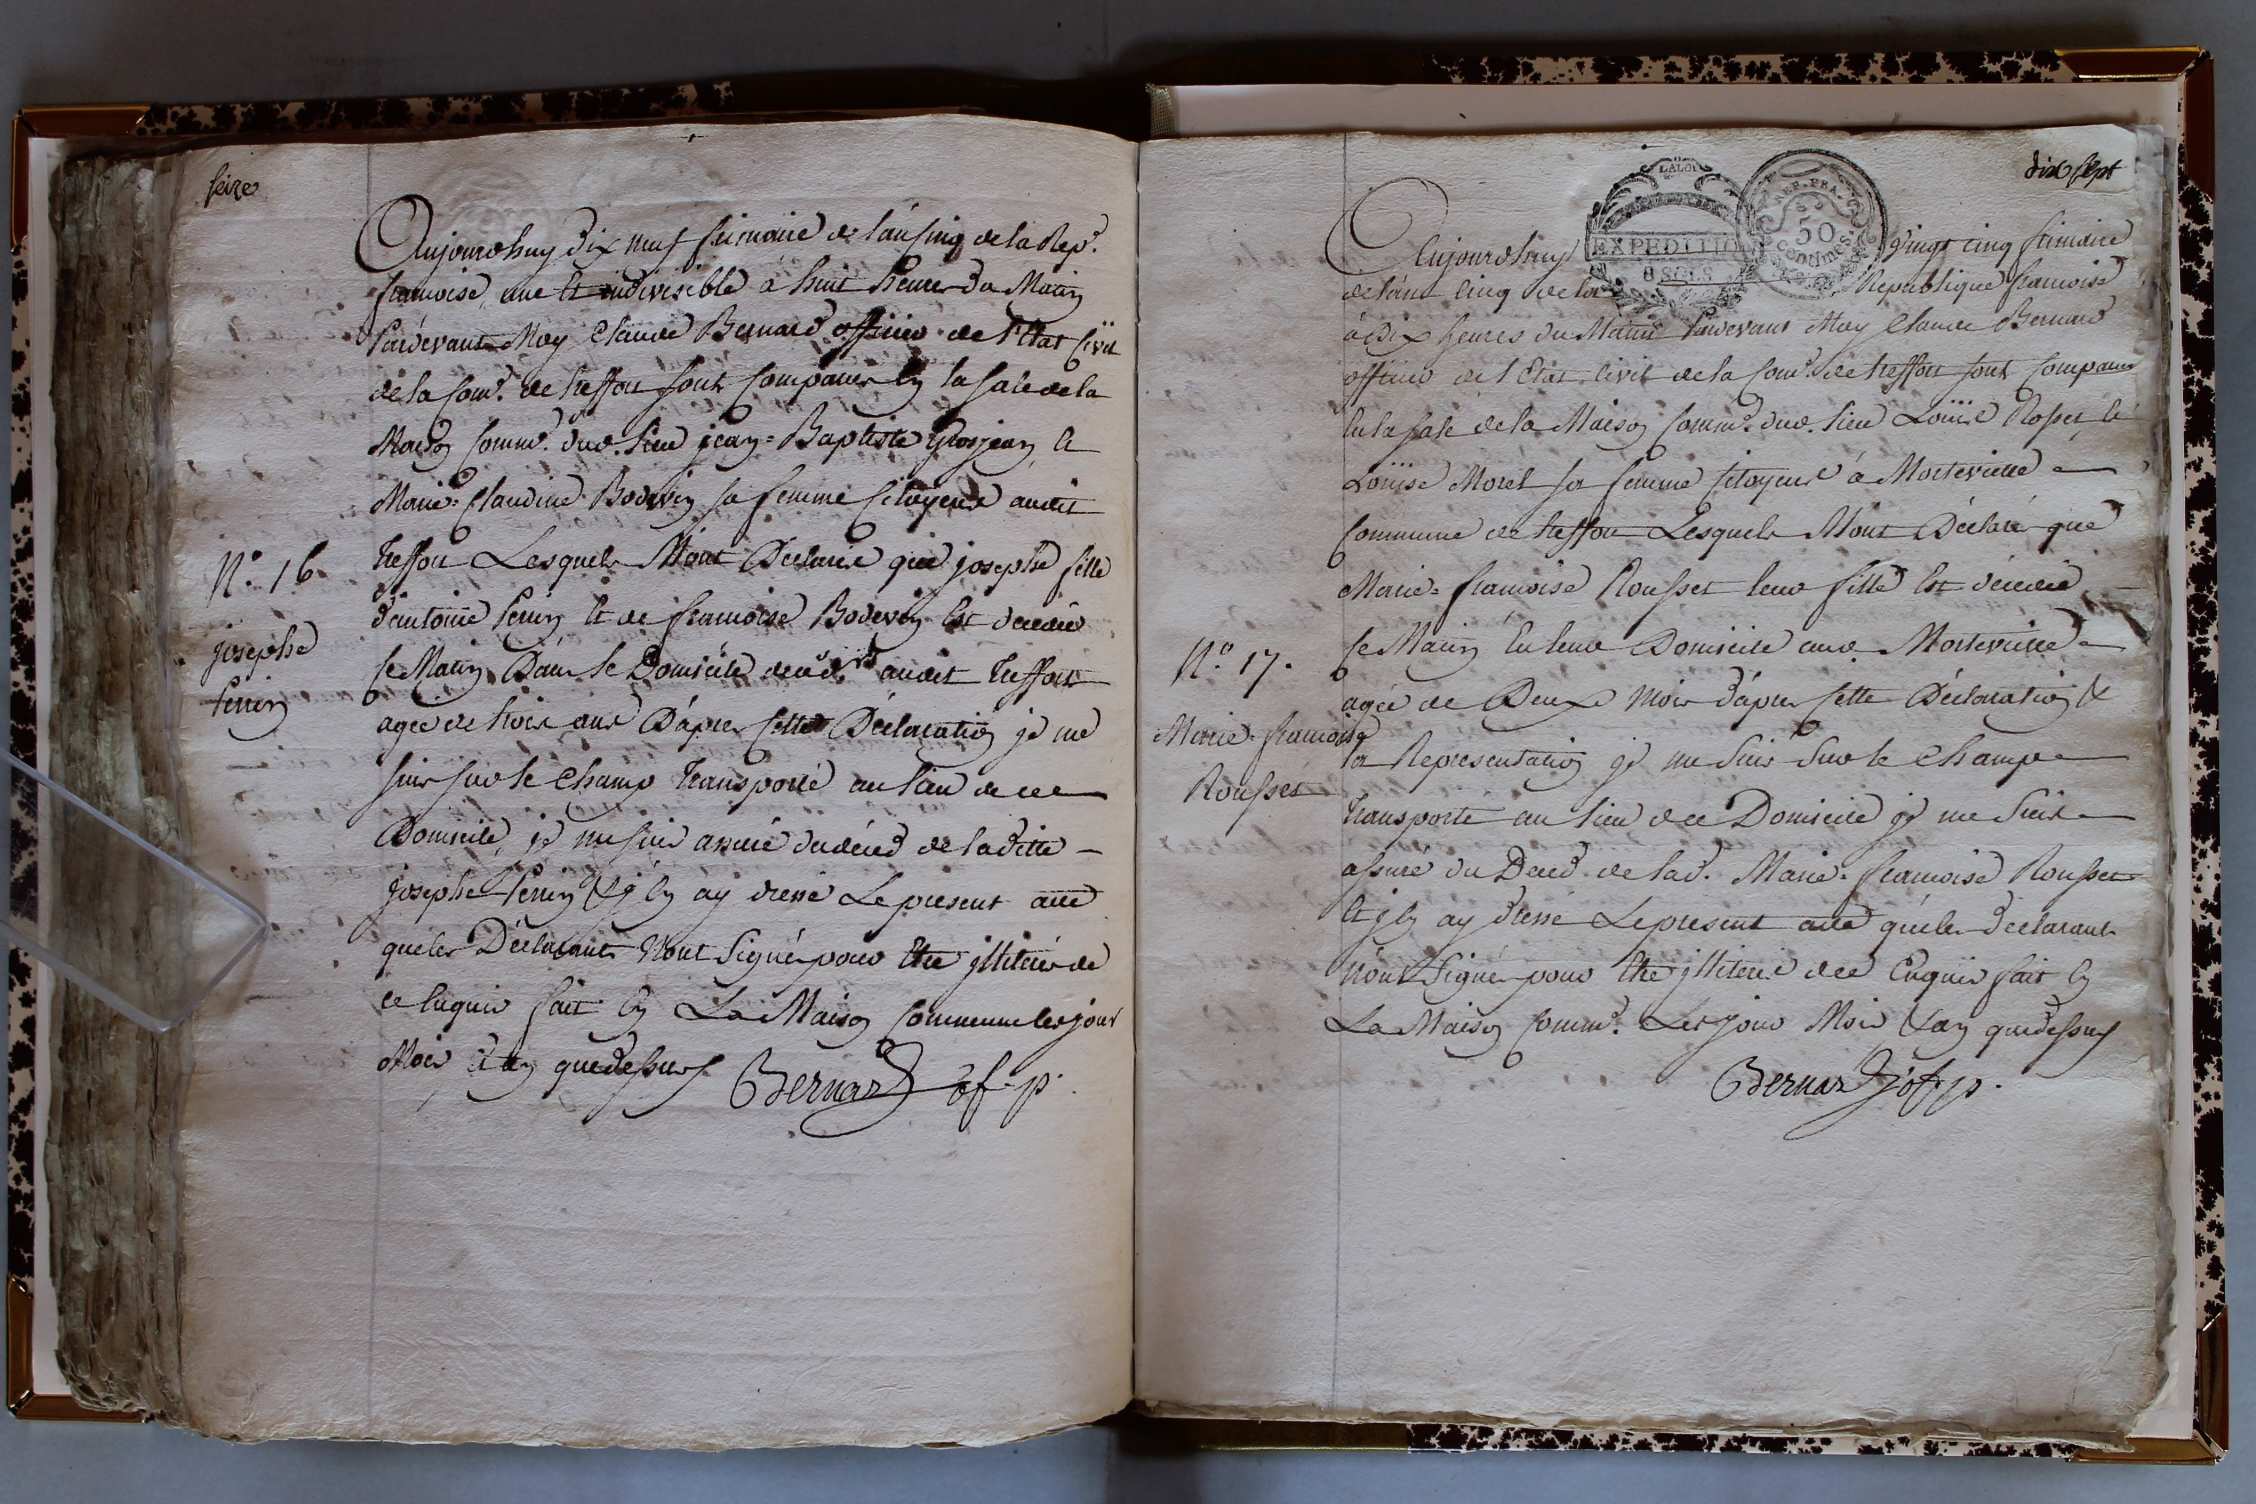 seize
Aujourdhuy dix neuf frimaire de l'an sinq de la Rep.
francoise, une et indivisible à huit heures du Matin
Pardevant Moy Claude Bernard officier de l'Etat Civil
de la Com.e de treffort sont comparus En la sale de la
Maison Comm.e dud. lieu jean=Baptiste Grosjean et
Marie=Claudine Bodevin sa femme Citoyens audit
treffort Lesquels M'ont Déclaré que josephe fille
d'antoine Perrin Et de francoise Bodevin Est décédée
ce Matin Dans le Domicile audit treffort
agée de trois ans D'après cette Déclaration je me
suis sur le Champ transporté au lieu de ce
Domicile, je me suis assuré du décéd de la ditte
josephe Perrin & j'En ay dressé Le present acte
que les Déclarants N'ont Signé pour Etre jlliteré de
ce Enquis fait En La Maison Commune les jour
Mois & an que dessus
Bernard of. p.
N.o 16
josephe
Perrin
dix sept
LA LOI
EXPEDITIO
8 SOLS
REP. FRA.
50
Centimes.
Aujourdhuy vingt cinq frimaire
de l'an cinq de la Republique francoise
à dix heures du Matin Pardevant Moy Claude Bernard
officier de l'Etat civil de la Com.e de treffort sont comparus
En la sale de la Maison Comm.e dud. lieu Louis Rosset et
Louise Morel sa femme Citoyens à Montevieille
Commune de treffort Lesquels M'ont Déclaré que
Marie=francoise Rousset leur fille Est décédée
ce Matin En leur Domicile aud. Montevieille
agée de Deux Mois d'après cette Déclaration &
la Representation je me suis sur le Champ
transporté au lieu de ce Domicile je me suis
assuré du Décéd de lad. Marie=francoise Rousset
et j'En ay dressé Le present acte que les déclarants
N'ont Signé pour Etre jlliteré de ce Enquis fait En
La Maison Comm.e Les jour Mois & an que dessus
Bernard of. p.
N.o 17.
Marie=francoise
Rousset